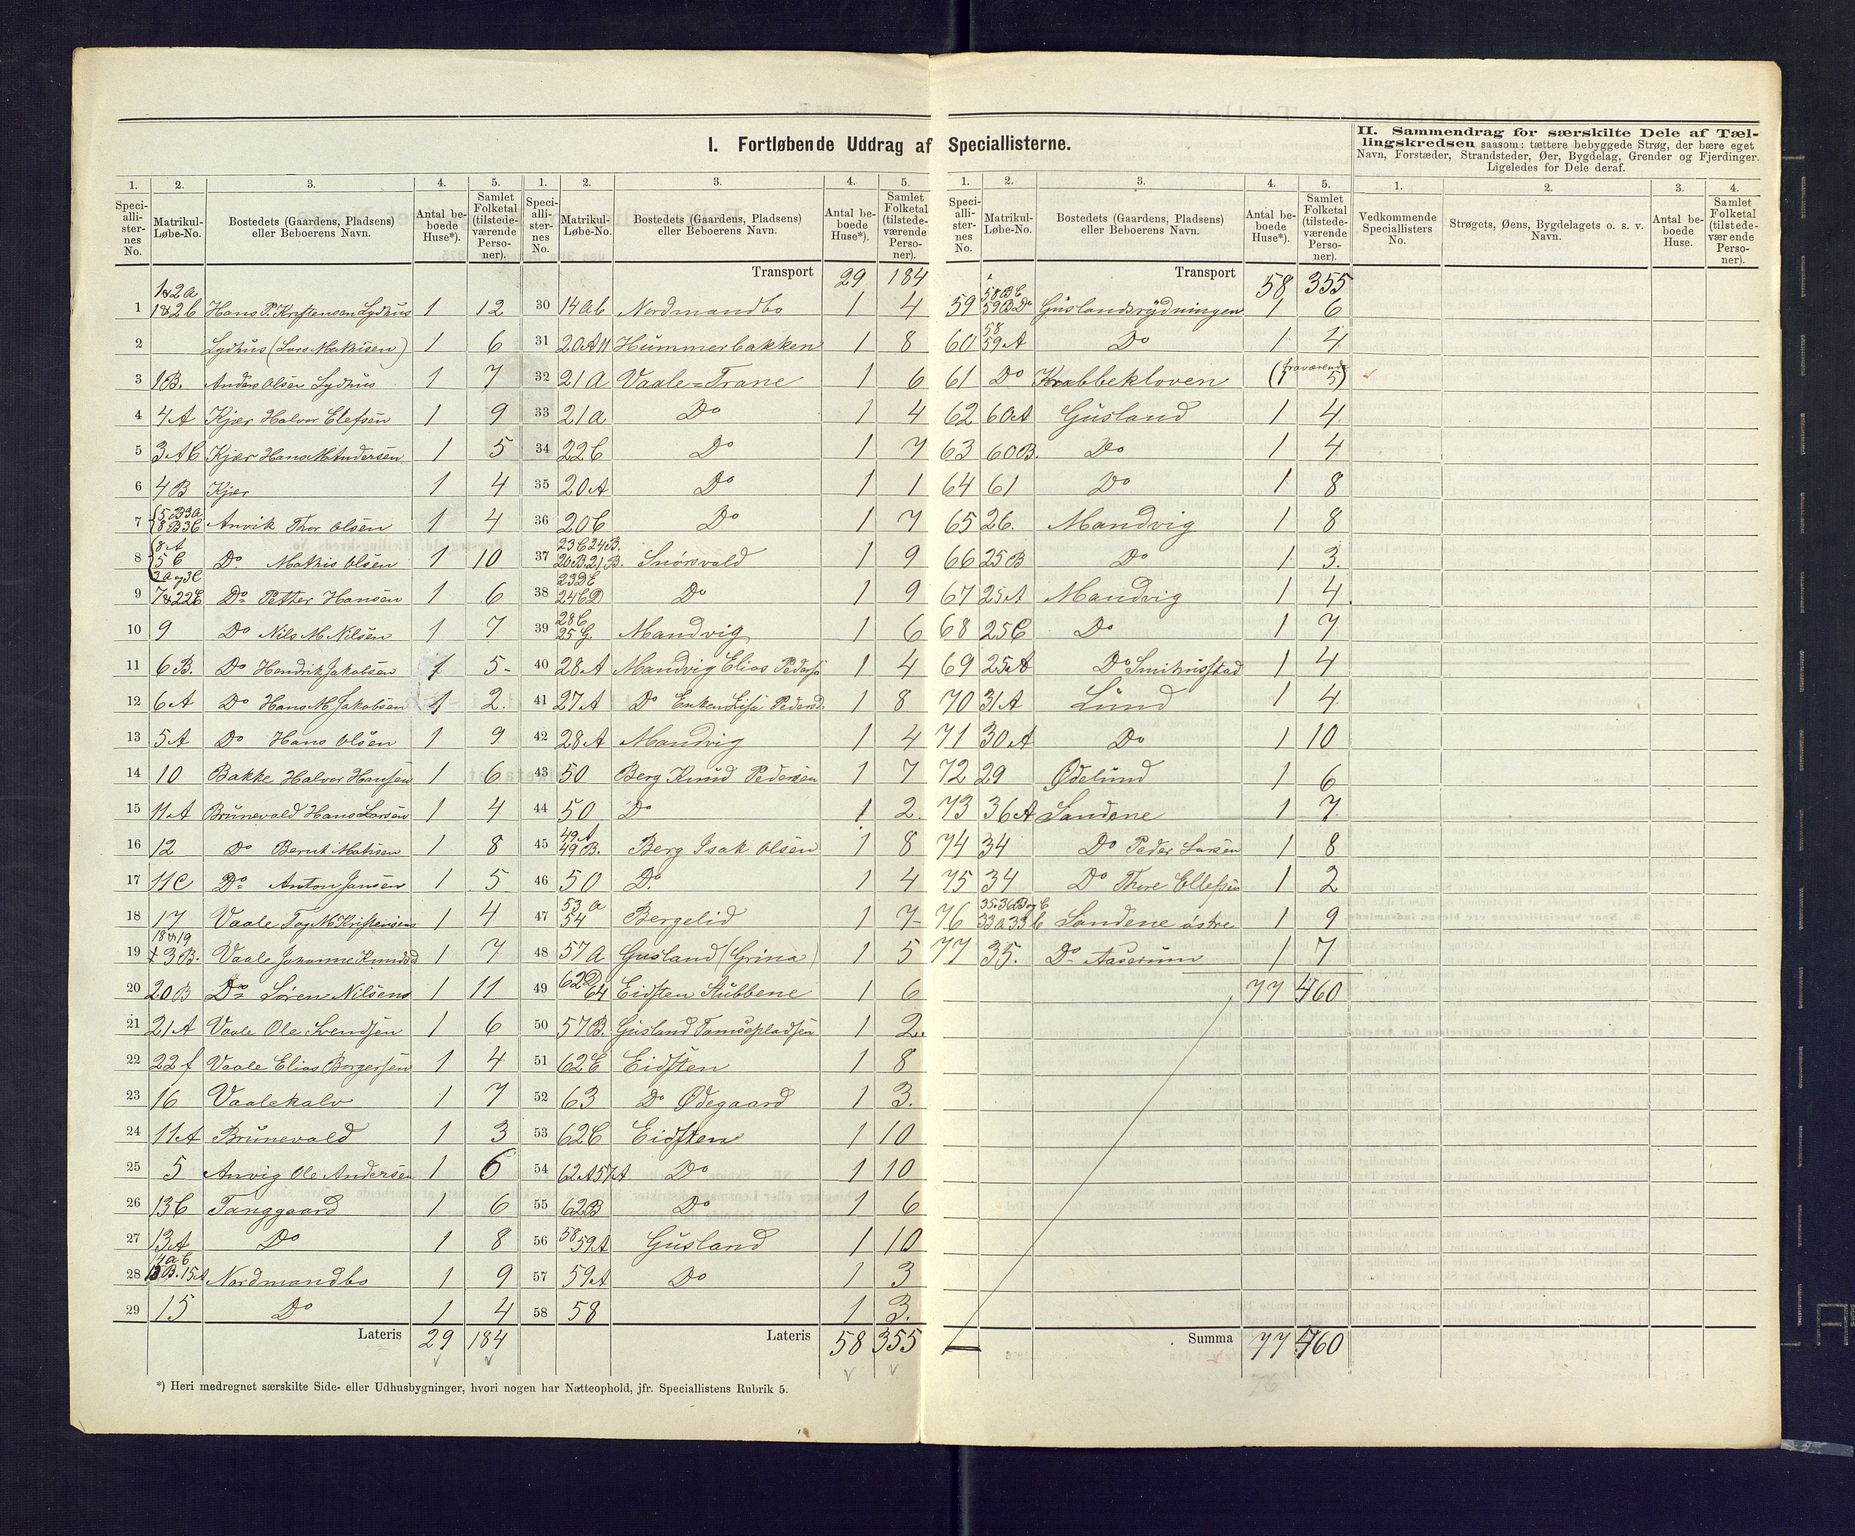 I. Fortløbende Uddrag af Speciallisterne.
II. Sammendrag for særskilte Dele af Tællingskredsen saasom: tættere bebyggede Strøg, der bære eget Navn, Forstæder, Strandsteder, Øer, Bygdelag, Grender og Fjerdinger. Ligeledes for Dele deraf.
1. 2. 3. 4. 5. 1. 2. 3. 4. 5. 1. 2. 3. 4. 5. 1. 2. 3. 4.
Speciallisternes No. Matrikul-Løbe-No. Bostedets (Gaardens, Pladsens) eller Beboerens Navn. Antal beboede Huse*). Samlet Folketal (tilstedeværende Personer).
Speciallisternes No. Matrikul-Løbe-No. Bostedets (Gaardens, Pladsens) eller Beboerens Navn. Antal beboede Huse*). Samlet Folketal (tilstedeværende Personer).
Speciallisternes No. Matrikul-Løbe-No. Bostedets (Gaardens, Pladsens) eller Beboerens Navn. Antal beboede Huse*). Samlet Folketal (tilstedeværende Personer).
Vedkommende Speciallisters No. Strøgets, Øens, Bygdelagets o. s. v. Navn. Antal beboede Huse. Samlet Folketal (tilstedeværende Personer).
1 1&2a 1&2b Hans P. Kristensen Lydhus 1 12
2 Lydhus (Lars Mathisen) 1 6
3 1B. Anders Olsen Lydhus 1 7
4 4A Kjær Halvor Elefsen 1 9
5 3AC Kjær Hans M Andersen 1 5
6 4B Kjær 1 4
7 5B3a 8B3C Anvik Thor Olsen 1 4
8 8A 5C Do Mathis Olsen 1 10
9 3a og 3C 7&22E Do Petter Hansen 1 6
10 9 Do Nils M Nilsen 1 7
11 6B. Do Hendrik Jakobsen 1 5
12 6A Do Hans M Jakobsen 1 2
13 5A Do Hans Olsen 1 9
14 10 Bakke Halvor Hansen 1 6
15 11A Brunevald Hans Larsen 1 4
16 12 Do Bernt Matisen 1 8
17 11C Do Anton Jansen 1 5
18 17 Vaale Tog M Kristensen 1 4
19 18&19 3B. Vaale Johanne Knudsd 1 7
20 20B Do Søren Nilsens 1 11
21 21A Vaale Ole Svendsen 1 6
22 22f Vaale Elias Borgersen 1 4
23 16 Vaalekalv 1 7
24 11A Brunevald 1 3
25 5 Anvig Ole Andersen 1 6
26 13C Tanggaard 1 6
27 13A Do 1 8
28 14ab 13B. 15A Nordmandbo 1 9
29 15 Do 1 4
Lateris 29 184
Transport 29 184
30 14Ab Nordmandbo 1 4
31 20A11 Hummerbakken 1 8
32 21A Vaale=Trane 1 6
33 21a Do 1 4
34 22C Do 1 7
35 20A Do 1 1
36 20C Do 1 7
37 23C24B. 20B21B. Snørsvald 1 9
38 23DE 24CD Do 1 9
39 28C 25G. Mandvig 1 6
40 28A Mandvig Elias Peders 1 4
41 27A Do Enken Lisa Pedersd. 1 8
42 28A Mandvig 1 4
43 50 Berg Knud Pedersen 1 7
44 50 Do 1 2
45 49A 49B. Berg Isak Olsen 1 8
46 50 Do 1 4
47 53a 54 Bergelid 1 7
48 57A Gusland (Grina) 1 5
49 62D 64 Eidsten Stubbene 1 6
50 57B. Gusland Tamsepladsen 1 2
51 62E Eidsten 1 8
52 63 Do Ødegaard 1 3
53 62C Eidsten 1 10
54 62A57A Do 1 10
55 62B Do 1 6
56 58 59A Gusland 1 10
57 59A Do 1 3
58 58 1 3
Lateris 58 355
Transport 58 355
59 58BC 59BD Guslandsrydningen 1 6
60 58 59A Do 1 4
61 Do Krabbekloven (fraværende 1 5)
62 60A Gusland 1 4
63 60B. Do 1 4
64 61 Do 1 8
65 26. Mandvig 1 8
66 25B Do 1 3
67 25A Mandvig 1 4
68 25C Do 1 7
69 25A Do Smihusstad 1 4
70 31A Lund 1 4
71 30A Do 1 10
72 29 Ødelund 1 6
73 36A Sandene 1 7
74 34 Do Peder Larsen 1 8
75 34 Do Thore Ellefsen 1 2
76 35.36B og C 33a33b Sandene østre 1 9
77 35. Do Aaserum 1 7
77 460
Summa 77 460
76
*) Heri medregnet særskilte Side- eller Udhusbygninger, hvori nogen har Natteophold, jfr. Speciallistens Rubrik 5.